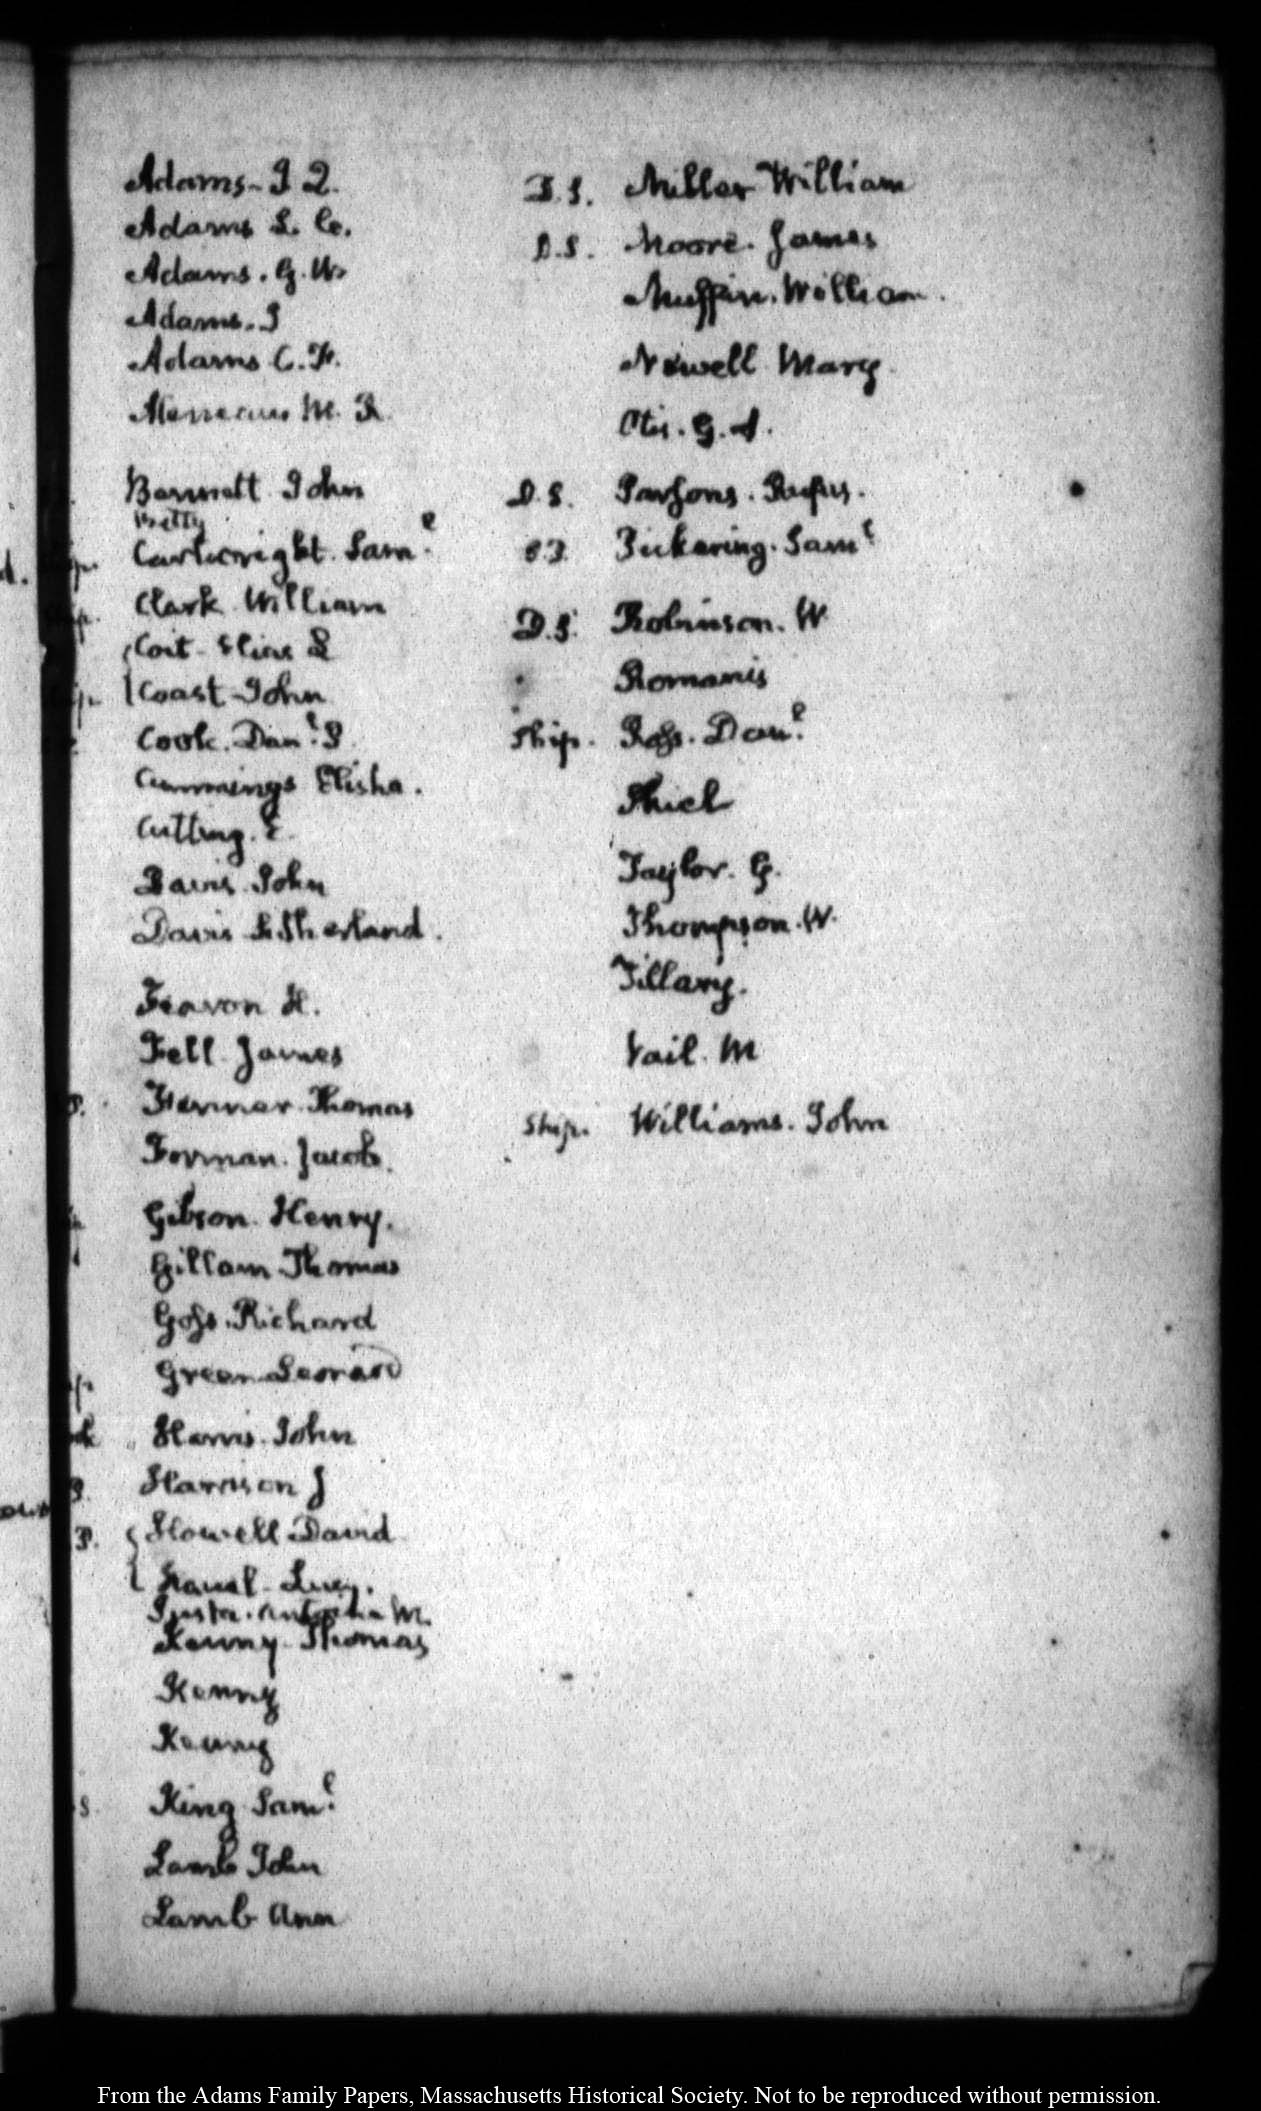 Adams. J Q.
Adams L. C.
Adams. G. W.
Adams. J
Adams C. F.
M. R.
Bennett John
Betty
Cartwright. Sam.l
Clark William
Coit
Coast John
Cook. Dan.l P.
Cummings Elisha.
Cutting. E.
Davis John
Davis Sutherland.
Fearon H.
Fell James
Farmer Thomas
Forman. Jacob.
Gibson Henry.
Gillam Thomas
Goss. Richard
Green Leonard
Harris. John
Harrison J
Howell David
Lucy.
Kenny Thomas
Kenny
Kenny
King Sam.l
Lamb John
Lamb Ann
D. S. Miller William
D. S. Moore. James
Muffin. William.
Newell Mary.
Otis. G. A.
D. S. Parsons. Rufus.
Pickering. Sam.l
D. S. Robinson. W
Romanis
Ship. Ross. Dan.l
Thiel
Taylor. G.
Thompson. W.
Tillary.
Vail. M
Ship. Williams. John
From the Adams Family Papers, Massachusetts Historical Society. Not to be reproduced without permission.